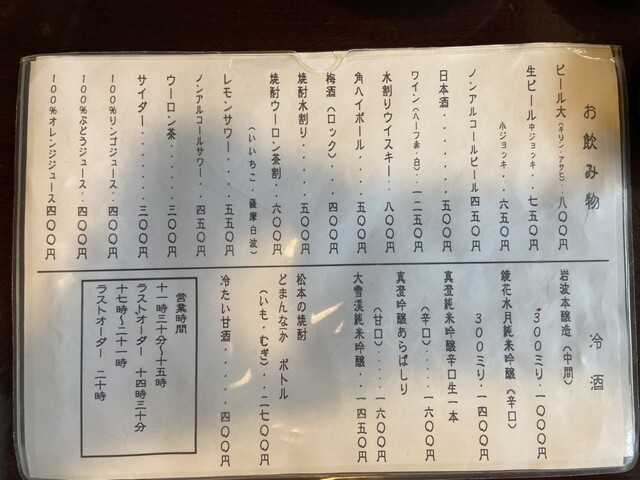 お飲み物
ビール大(キリン・アサヒ)‥八〇〇円
生ビール中ジョンキ‥七五〇円
小ジョンキ‥六五〇円
ノンアルコールビール四五〇円
日本酒‥‥‥五五〇円
ワイン(ハーフ赤・白)‥一二五〇円
水割りウイスキー‥八〇〇円
角ハイボール‥‥五〇〇円
梅酒(ロック)‥‥四〇〇円
焼酎水割り‥‥‥五〇〇円
焼酎ウーロン茶割‥六〇〇円
(いいちこ・薩摩白波)
レモンサワー‥‥五五〇円
ノンアルコールサワー‥四五〇円
ウーロン茶‥‥‥三〇〇円
サイダー‥‥‥‥三〇〇円
100%リンゴジュース‥四〇〇円
100%ぶどうジュース‥四〇〇円
100%オレンジジュース四〇〇円
冷酒
岩波本醸造(中間)
300ミリ・一〇〇〇円
鏡花水月純米吟醸(辛口)
300ミリ・一四〇〇円
真澄純米吟醸辛口生一本
(辛口)‥‥‥一六〇〇円
真澄吟醸あらばしり
(甘口)‥‥‥一六〇〇円
大雪渓純米吟醸‥一四五〇円
松本の焼酎
どまんなか ボトル
(いも・むぎ)‥二七〇〇円
冷たい甘酒‥‥‥四〇〇円
営業時間
十一時三十分〜十五時
ラストオーダー 十四時三十分
十七時〜二十一時
ラストオーダー 二十時